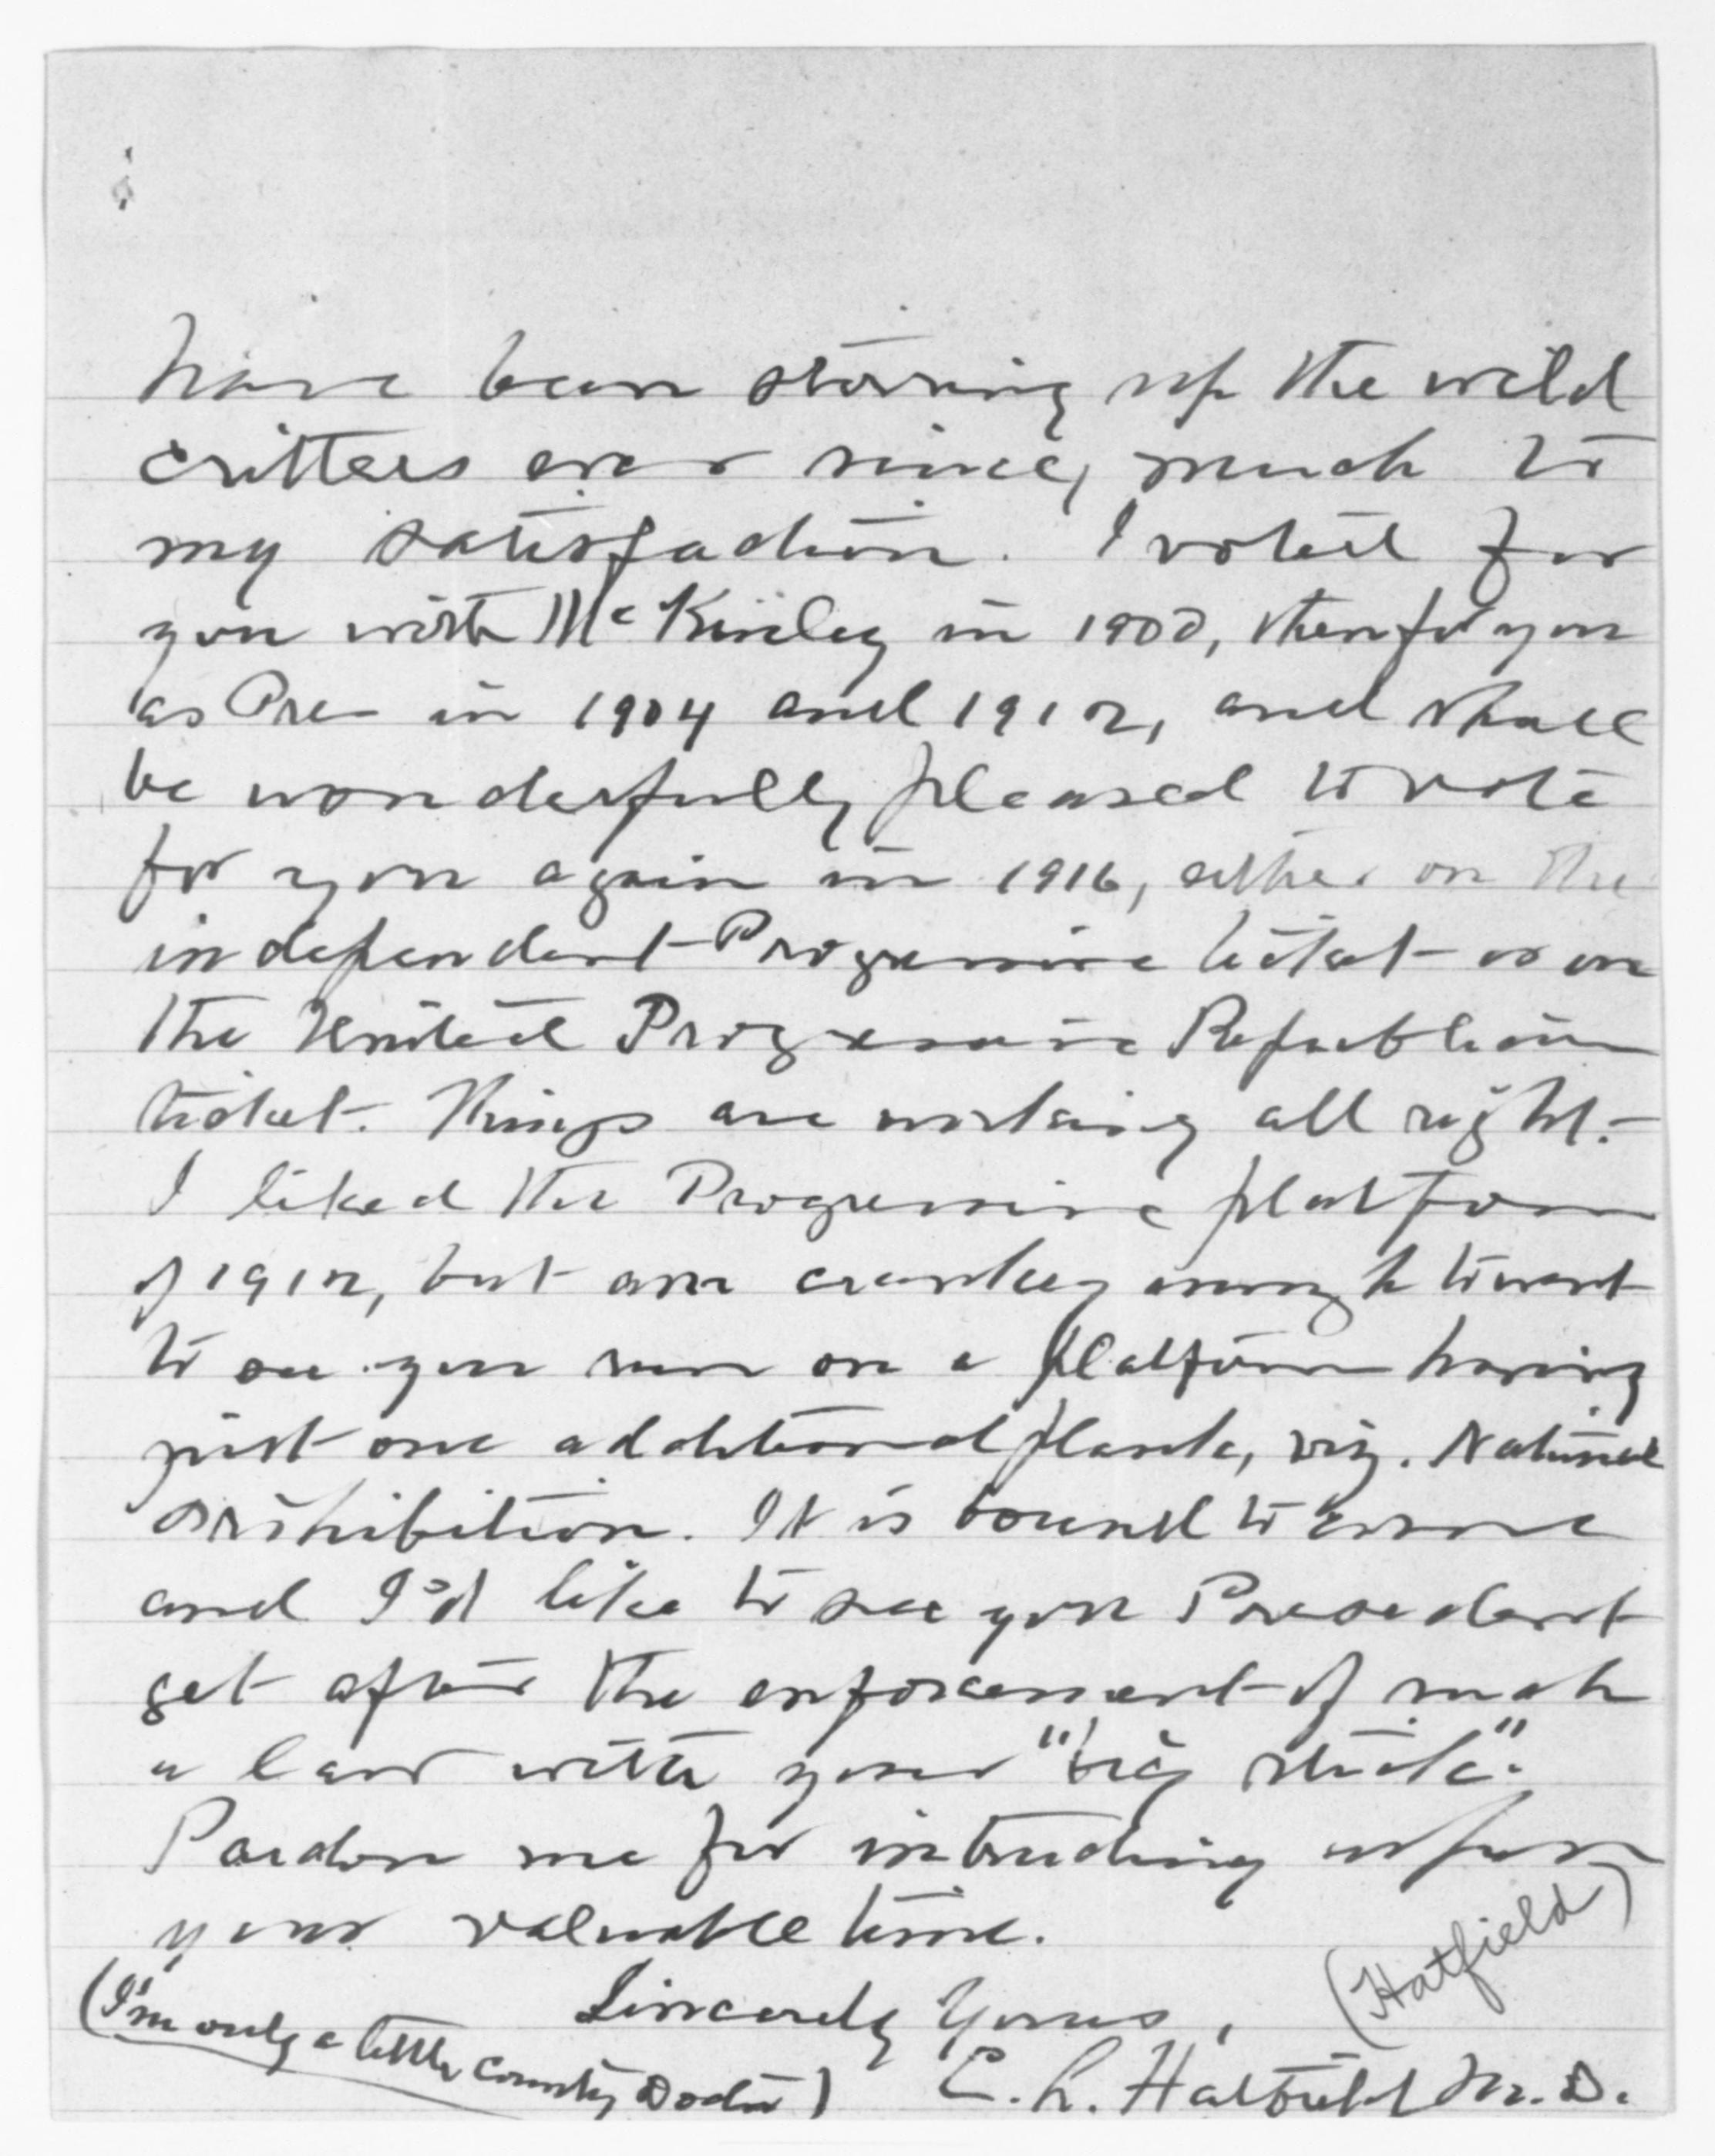 have been stirring up the wild
critters ever since, much to
my satisfaction. I voted for
you with McKinley in 1900, then for you
as Pres in 1904 and 1912, and shall
be wonderfully pleased to vote
for you again in 1916, either on the
independent Progressive ticket or on
the United Progressive Republican
ticket. Things are working all right.
I liked the Progressive platform
of 1912, but am cranky enough to want
to see you run on a platform having
just one additional plank, viz. National
Prohibition. It is bound to come
and I'd like to see you President
get after the enforcement of such
a law with your "big stick".
Pardon me for intruding upon
your valuable time.
Sincerely Yours,
(Hatfield)
C. L. Hatfield M.D.
(I'm only a little country Doctor)